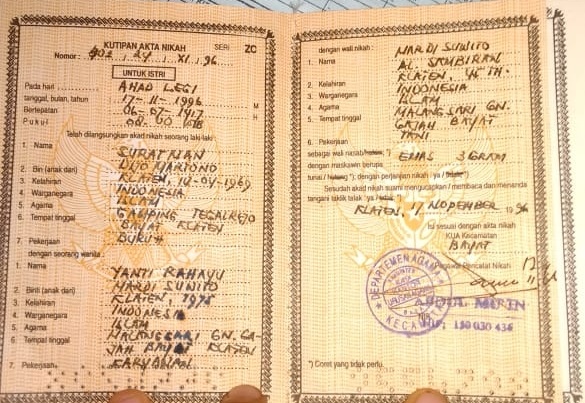 KUTIPAN AKTA NIKAH SERI ZC
Nomor : 402 / 24 / XI / 96
UNTUK ISTRI
Pada hari AHAD LEGI
tanggal, bulan, tahun 17-11-1996 M
Bertepatan 06-07-1417 H
Pukul
Telah dilangsungkan akad nikah seorang laki-laki :
1. Nama : SURATMAN
2. Bin (anak dari) : DWO HARTONO
3. Kelahiran : KLATEN, 14-04-1969
4. Warganegara : INDONESIA
5. Agama : ISLAM
6. Tempat tinggal : TEGALREJO
BAYAT KLATEN
7. Pekerjaan : BURUH
dengan seorang wanita
1. Nama : YANTI RAHAYU
2. Binti (anak dari) : MARDI SUWITO
3. Kelahiran : KLATEN, 1975
4. Warganegara : INDONESIA
5. Agama : ISLAM
6. Tempat tinggal : MALANGSARI GN. GA-
JAH BAYAT KLATEN
7. Pekerjaan : KARYAWAN
dengan wali nikah :
1. Nama : MARDI SUWITO
AL. SAMBIRAN
2. Kelahiran : KLATEN, TH.
3. Warganegara : INDONESIA
4. Agama : ISLAM
5. Tempat tinggal : MALANGSARI GN.
GAJAH BAYAT
6. Pekerjaan : TANI
sebagai wali nasab/hakim *)
dengan maskawin berupa EMAS 3 GRAM
tunai / hutang *); dengan perjanjian nikah : ya / tidak *)
Sesudah akad nikah suami mengucapkan / membaca dan menanda
tangani taklik talak : ya / tidak
KLATEN, 17 NOPEMBER 1996
Isi sesuai dengan akta nikah
KUA Kecamatan
BAYAT
Pegawai Pencatat Nikah
DEPARTEMEN AGAMA
KECAMATAN
NIP: 150 030 436
*) Coret yang tidak perlu.